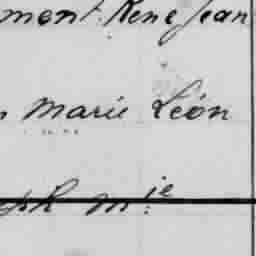 ment. René Jean
Marie Léon
ph M.ie